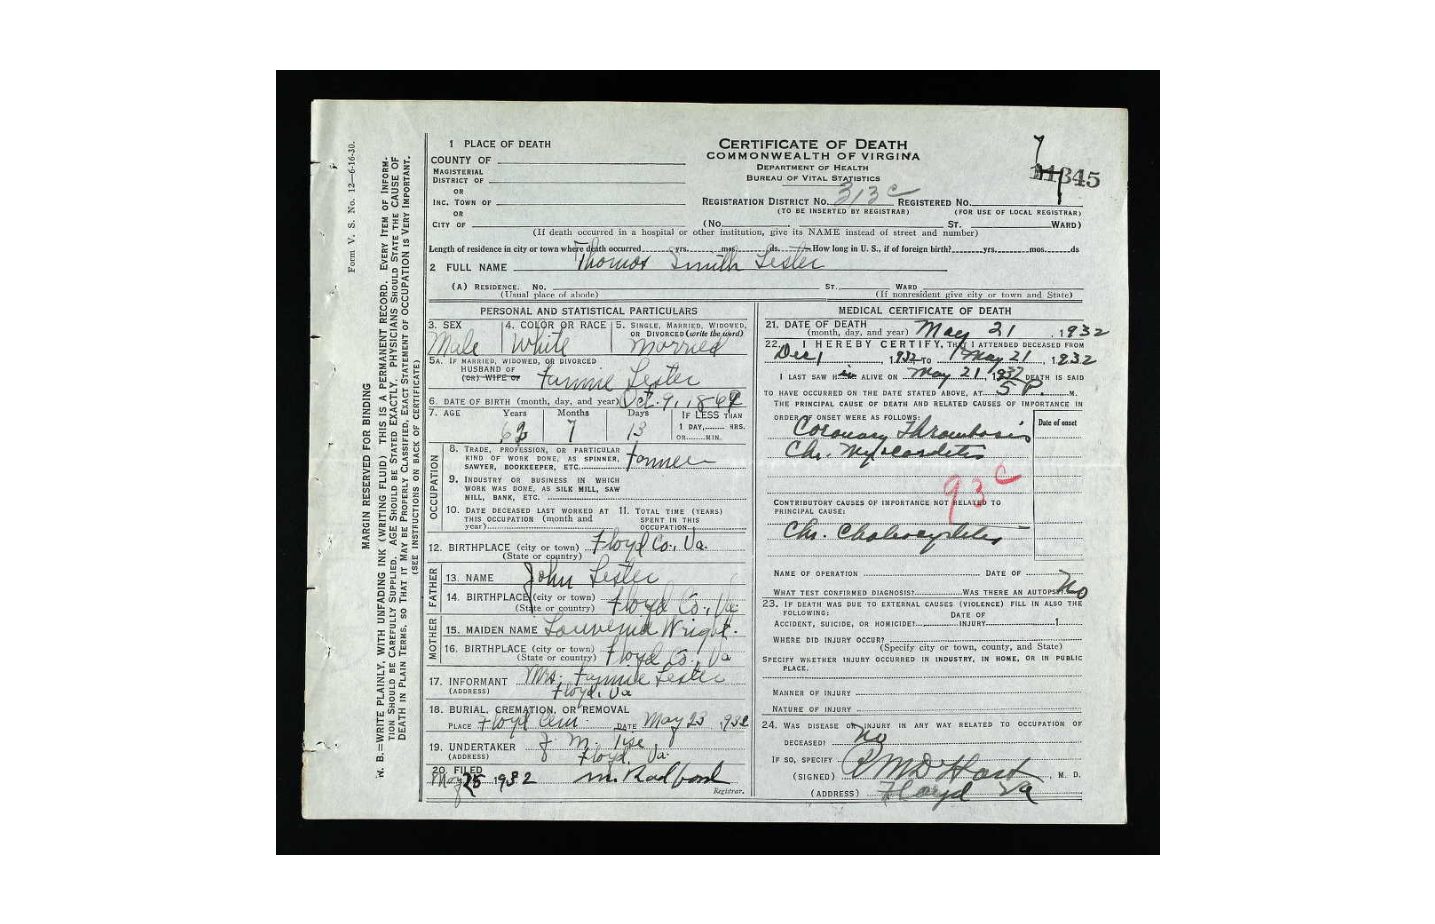 Form V. S. No. 12—6-16-30.
MARGIN RESERVED FOR BINDING
N. B.—WRITE PLAINLY, WITH UNFADING INK (WRITING FLUID) THIS IS A PERMANENT RECORD. EVERY ITEM OF INFORM-
TION SHOULD BE CAREFULLY SUPPLIED. AGE SHOULD BE STATED EXACTLY. PHYSICIANS SHOULD STATE THE CAUSE OF
DEATH IN PLAIN TERMS, SO THAT IT MAY BE PROPERLY CLASSIFIED. EXACT STATEMENT OF OCCUPATION IS VERY IMPORTANT.
(SEE INSTRUCTIONS ON BACK OF CERTIFICATE)
CERTIFICATE OF DEATH
COMMONWEALTH OF VIRGINIA
DEPARTMENT OF HEALTH
BUREAU OF VITAL STATISTICS
7
11345
1 PLACE OF DEATH
COUNTY OF
MAGISTERIAL
DISTRICT OF
OR
INC. TOWN OF
OR
CITY OF
REGISTRATION DISTRICT NO. 313 C REGISTERED NO.
(TO BE INSERTED BY REGISTRAR) (FOR USE OF LOCAL REGISTRAR)
(No. ST. WARD)
(If death occurred in a hospital or other institution, give its NAME instead of street and number)
Length of residence in city or town where death occurred yrs. mos. ds. How long in U. S., if of foreign birth? yrs. mos. ds
2 FULL NAME Thomas Smith Lester
(A) RESIDENCE. No. ST. WARD
(Usual place of abode) (If nonresident give city or town and State)
PERSONAL AND STATISTICAL PARTICULARS
3. SEX 4. COLOR OR RACE 5. SINGLE, MARRIED, WIDOWED,
OR DIVORCED (write the word)
Male White Married
5A. IF MARRIED, WIDOWED, OR DIVORCED
HUSBAND OF
(OR) WIFE OF Fannie Lester
6. DATE OF BIRTH (month, day, and year) Oct. 9, 1869
7. AGE Years Months Days IF LESS THAN
1 DAY, HRS.
OR MIN.
62 7 13
OCCUPATION
8. TRADE, PROFESSION, OR PARTICULAR
KIND OF WORK DONE, AS SPINNER,
SAWYER, BOOKKEEPER, ETC. Farmer
9. INDUSTRY OR BUSINESS IN WHICH
WORK WAS DONE, AS SILK MILL, SAW
MILL, BANK, ETC.
10. DATE DECEASED LAST WORKED AT
THIS OCCUPATION (month and
year)
11. TOTAL TIME (YEARS)
SPENT IN THIS
OCCUPATION
12. BIRTHPLACE (city or town) Floyd Co., Va.
(State or country)
FATHER
13. NAME John Lester
14. BIRTHPLACE (city or town)
(State or country) Floyd Co., Va.
MOTHER
15. MAIDEN NAME Louvenia Wright.
16. BIRTHPLACE (city or town)
(State or country) Floyd Co., Va
17. INFORMANT Mrs. Fannie Lester
(ADDRESS) Floyd, Va
18. BURIAL, CREMATION, OR REMOVAL
PLACE Floyd Cem. DATE May 23 1932
19. UNDERTAKER J. M.
(ADDRESS) Floyd, Va.
20. FILED
May 25 1932 M. Radford
Registrar.
MEDICAL CERTIFICATE OF DEATH
21. DATE OF DEATH
(month, day, and year) May 21, 1932
22. I HEREBY CERTIFY, THAT I ATTENDED DECEASED FROM
Dec 1, 1932 TO May 21, 1932
I LAST SAW HIM ALIVE ON May 21 1932 DEATH IS SAID
TO HAVE OCCURRED ON THE DATE STATED ABOVE, AT 5 P. M.
THE PRINCIPAL CAUSE OF DEATH AND RELATED CAUSES OF IMPORTANCE IN
ORDER OF ONSET WERE AS FOLLOWS:
Date of onset
Coronary Thrombosis
Chr. Myocarditis
93 C
CONTRIBUTORY CAUSES OF IMPORTANCE NOT RELATED TO
PRINCIPAL CAUSE:
Chr. Cholecystitis
NAME OF OPERATION DATE OF
WHAT TEST CONFIRMED DIAGNOSIS? WAS THERE AN AUTOPSY? No
23. IF DEATH WAS DUE TO EXTERNAL CAUSES (VIOLENCE) FILL IN ALSO THE
FOLLOWING:
DATE OF
ACCIDENT, SUICIDE, OR HOMICIDE? INJURY 1
WHERE DID INJURY OCCUR?
(Specify city or town, county, and State)
SPECIFY WHETHER INJURY OCCURRED IN INDUSTRY, IN HOME, OR IN PUBLIC
PLACE.
MANNER OF INJURY
NATURE OF INJURY
24. WAS DISEASE OR INJURY IN ANY WAY RELATED TO OCCUPATION OF
DECEASED? No
IF SO, SPECIFY
(SIGNED) M. D.
(ADDRESS) Floyd Va